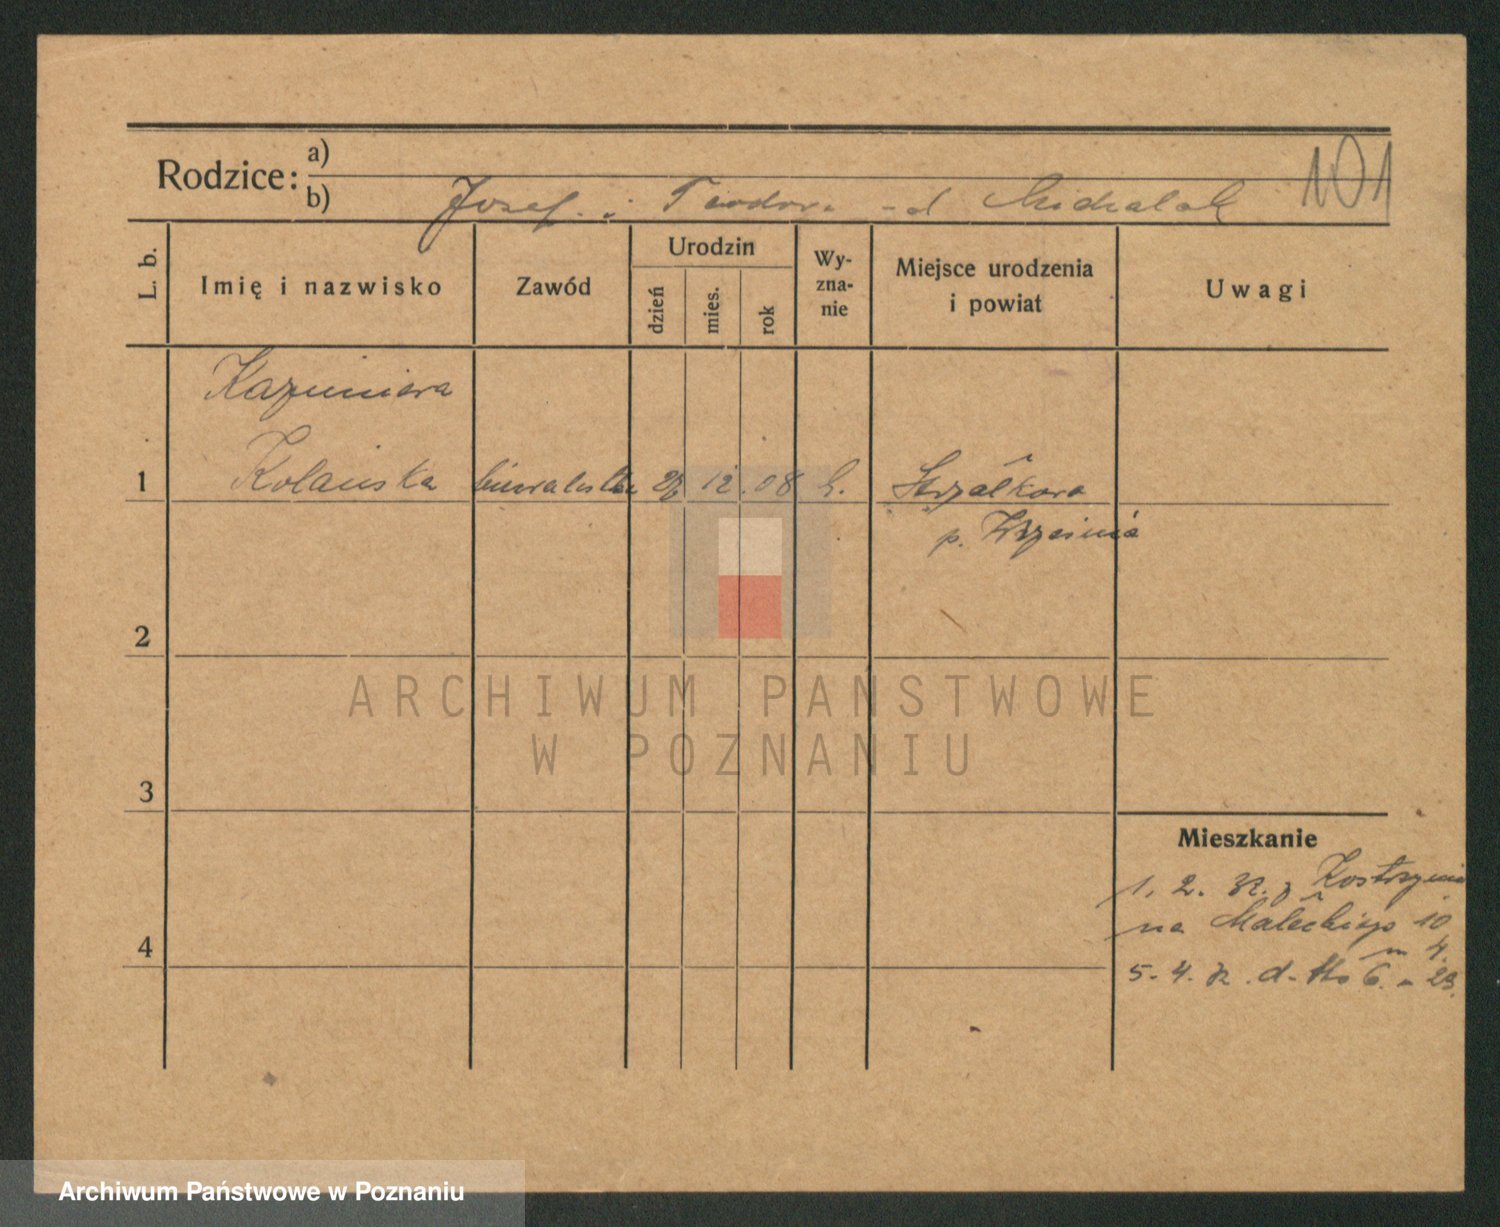 Rodzice:
a)
b) Józef i Teodora -d Michalak
101
L. b.
Imię i nazwisko
Zawód
Urodzin
dzień
mies.
rok
Wy-
zna-
nie
Miejsce urodzenia
i powiat
Uwagi
Kazimiera
1 Kolańska 12 08 Strzałkowo
p. Września
2
3
4
Mieszkanie
1. 2. 32. z Kostrzynia
na Małeckiego 10
m 4.
5. 4. 32. d-tto 6. m 23.
ARCHIWUM PAŃSTWOWE
W POZNANIU
Archiwum Państwowe w Poznaniu